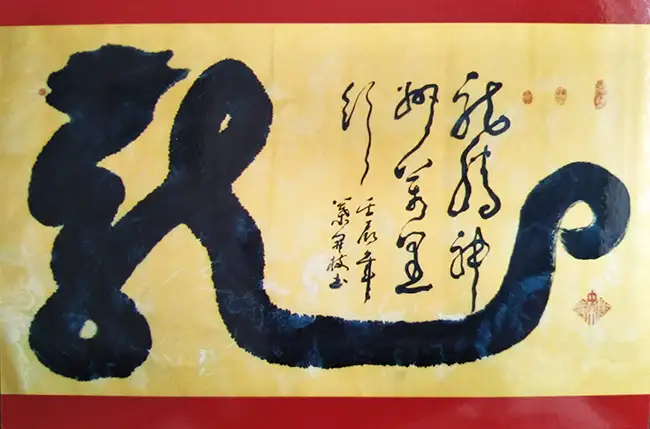 龍
龍騰神
州萬里
行
壬辰年